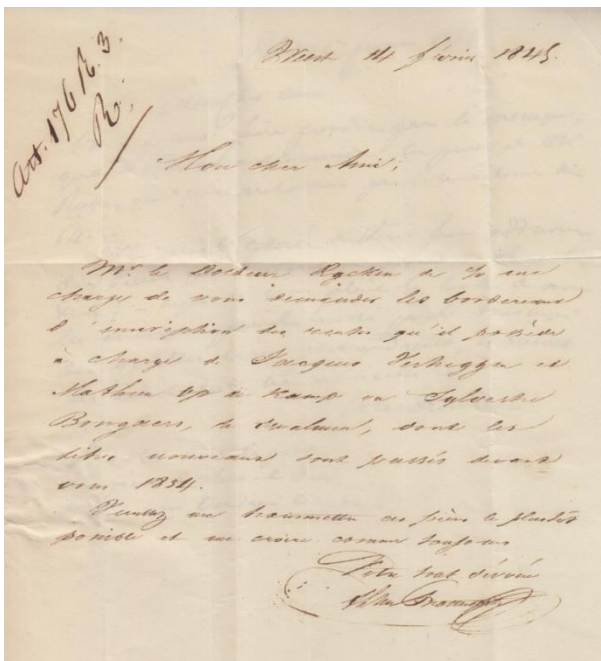 Art. 176 R. 3.
R.
Weert 14 février 1845.
Mon cher Ami,
Mr le Docteur Rycken de me
charge de vous demander les bordereaux
d'inscription des rentes qu'il possède
à charge de Jacques Verheggen et
Mathieu op de Kamp ou Sylvestre
Bongaers, de Swalmen, dont les
titres nouveaux sont passés devant
vous 1834.
Veuillez me transmettre ces pièces le plutôt
possible et me croire comme toujours
Votre tout dévoué